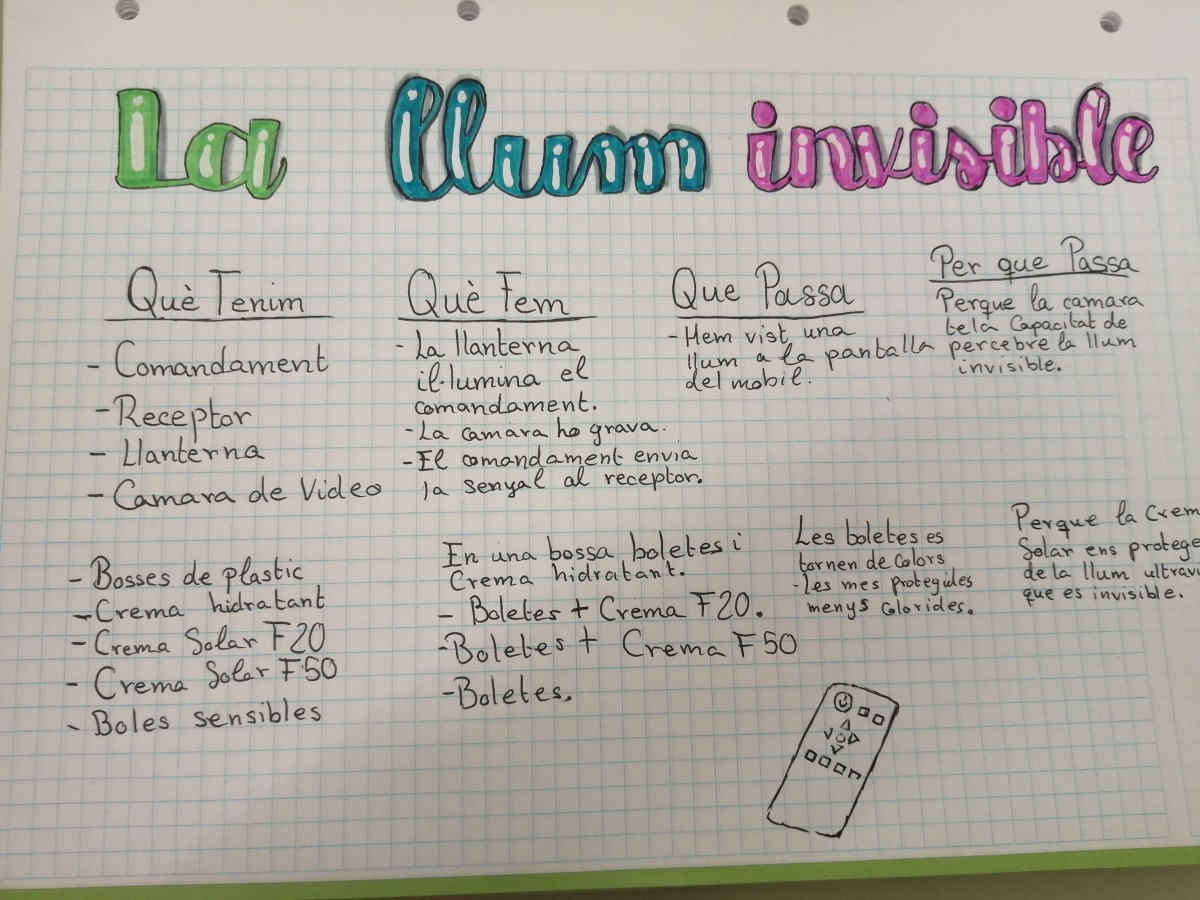 La llum invisible
Què Tenim
- Comandament
- Receptor
- Llanterna
- Camara de Video
Què Fem
- La llanterna
il·lumina el
comandament.
- La camara ho grava.
- El comandament envia
la senyal al receptor.
Que Passa
- Hem vist una
llum a la pantalla
del mobil.
Per que Passa
Perque la camara
te la Capacitat de
percebre la llum
invisible.
- Bosses de plastic
- Crema hidratant
- Crema Solar F20
- Crema Solar F50
- Boles sensibles
En una bossa boletes i
Crema hidratant.
- Boletes + Crema F20.
- Boletes + Crema F50
- Boletes.
Les boletes es
tornen de Colors
- Les mes protegides
menys Colorides.
Perque la Crem
Solar ens protege
de la llum ultravi
que es invisible.